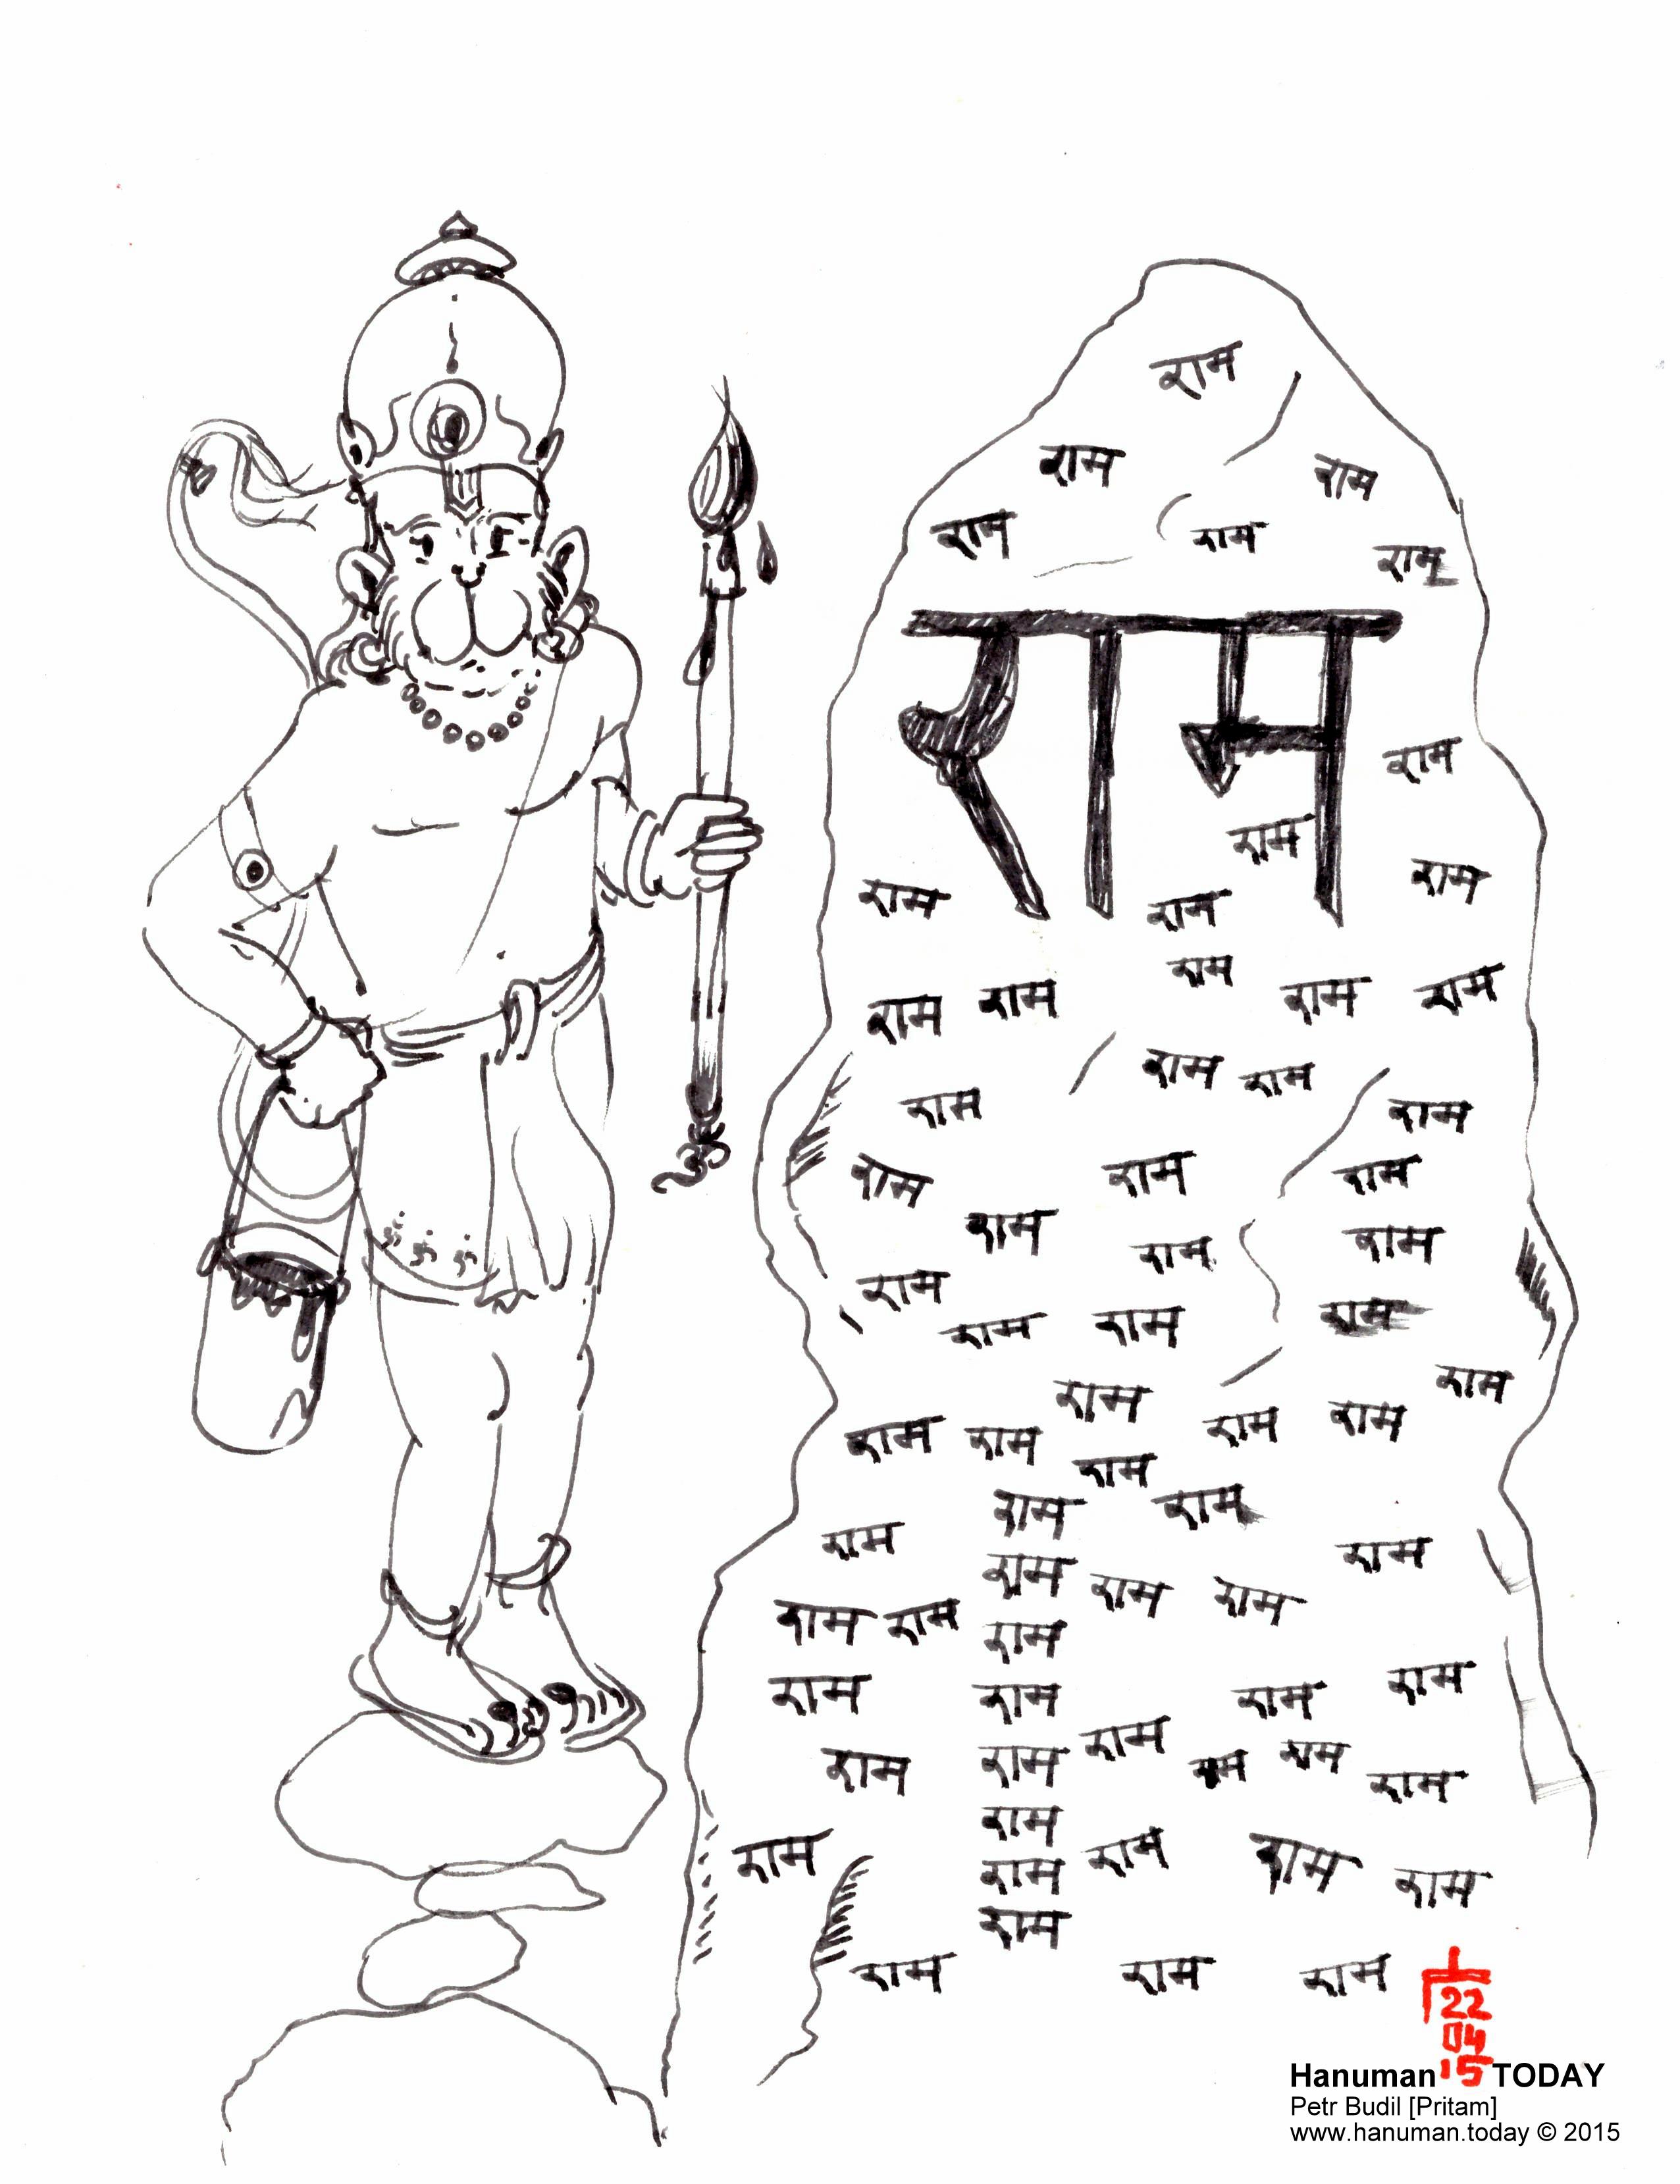 राम
राम राम
राम राम राम
राम
राम
राम
राम राम राम
राम
राम राम राम राम
राम राम
राम राम
राम राम राम
राम राम राम
राम
राम राम राम
राम
राम राम
राम राम
राम
राम राम
राम राम
राम राम
राम राम राम
राम राम राम
राम राम
राम राम
राम राम राम
राम राम राम राम
राम
राम राम राम राम राम
राम
राम राम राम
ॐ
ॐ ॐ ॐ
22
04
15
Hanuman TODAY
Petr Budil [Pritam]
www.hanuman.today © 2015